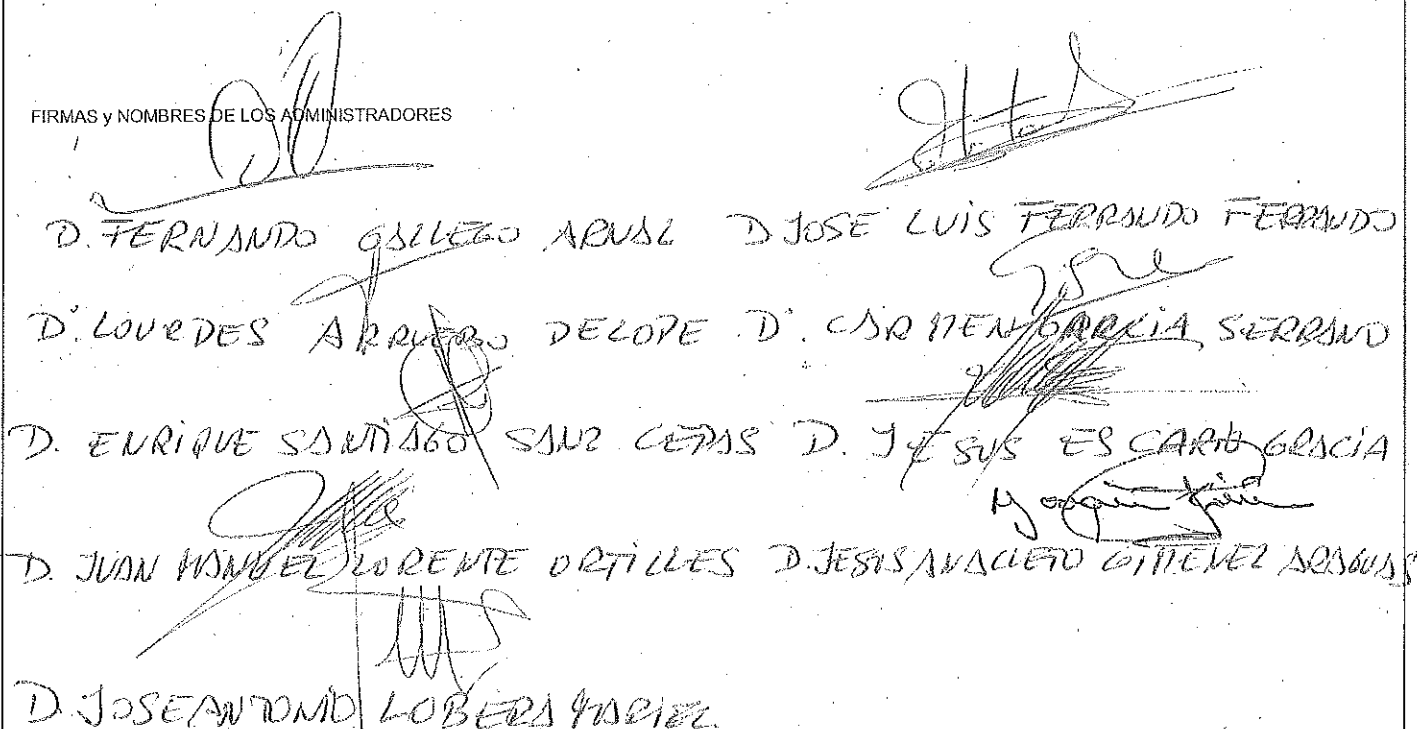 FIRMAS y NOMBRES DE LOS ADMINISTRADORES
D. FERNANDO GALLEGO ARNAL D JOSE LUIS FERRANDO FERRANDO
Dª. LOURDES ARRUEBO DELOPE Dª. CARMEN GARCIA SERRANO
D. ENRIQUE SANTIAGO SANZ CEPAS D. JESUS ESCARIO GRACIA
D. JUAN MANUEL LORENTE ORTILLES D. JESUS ANACLETO GIMENEZ ARAGUAS
D. JOSE ANTONIO LOBERA